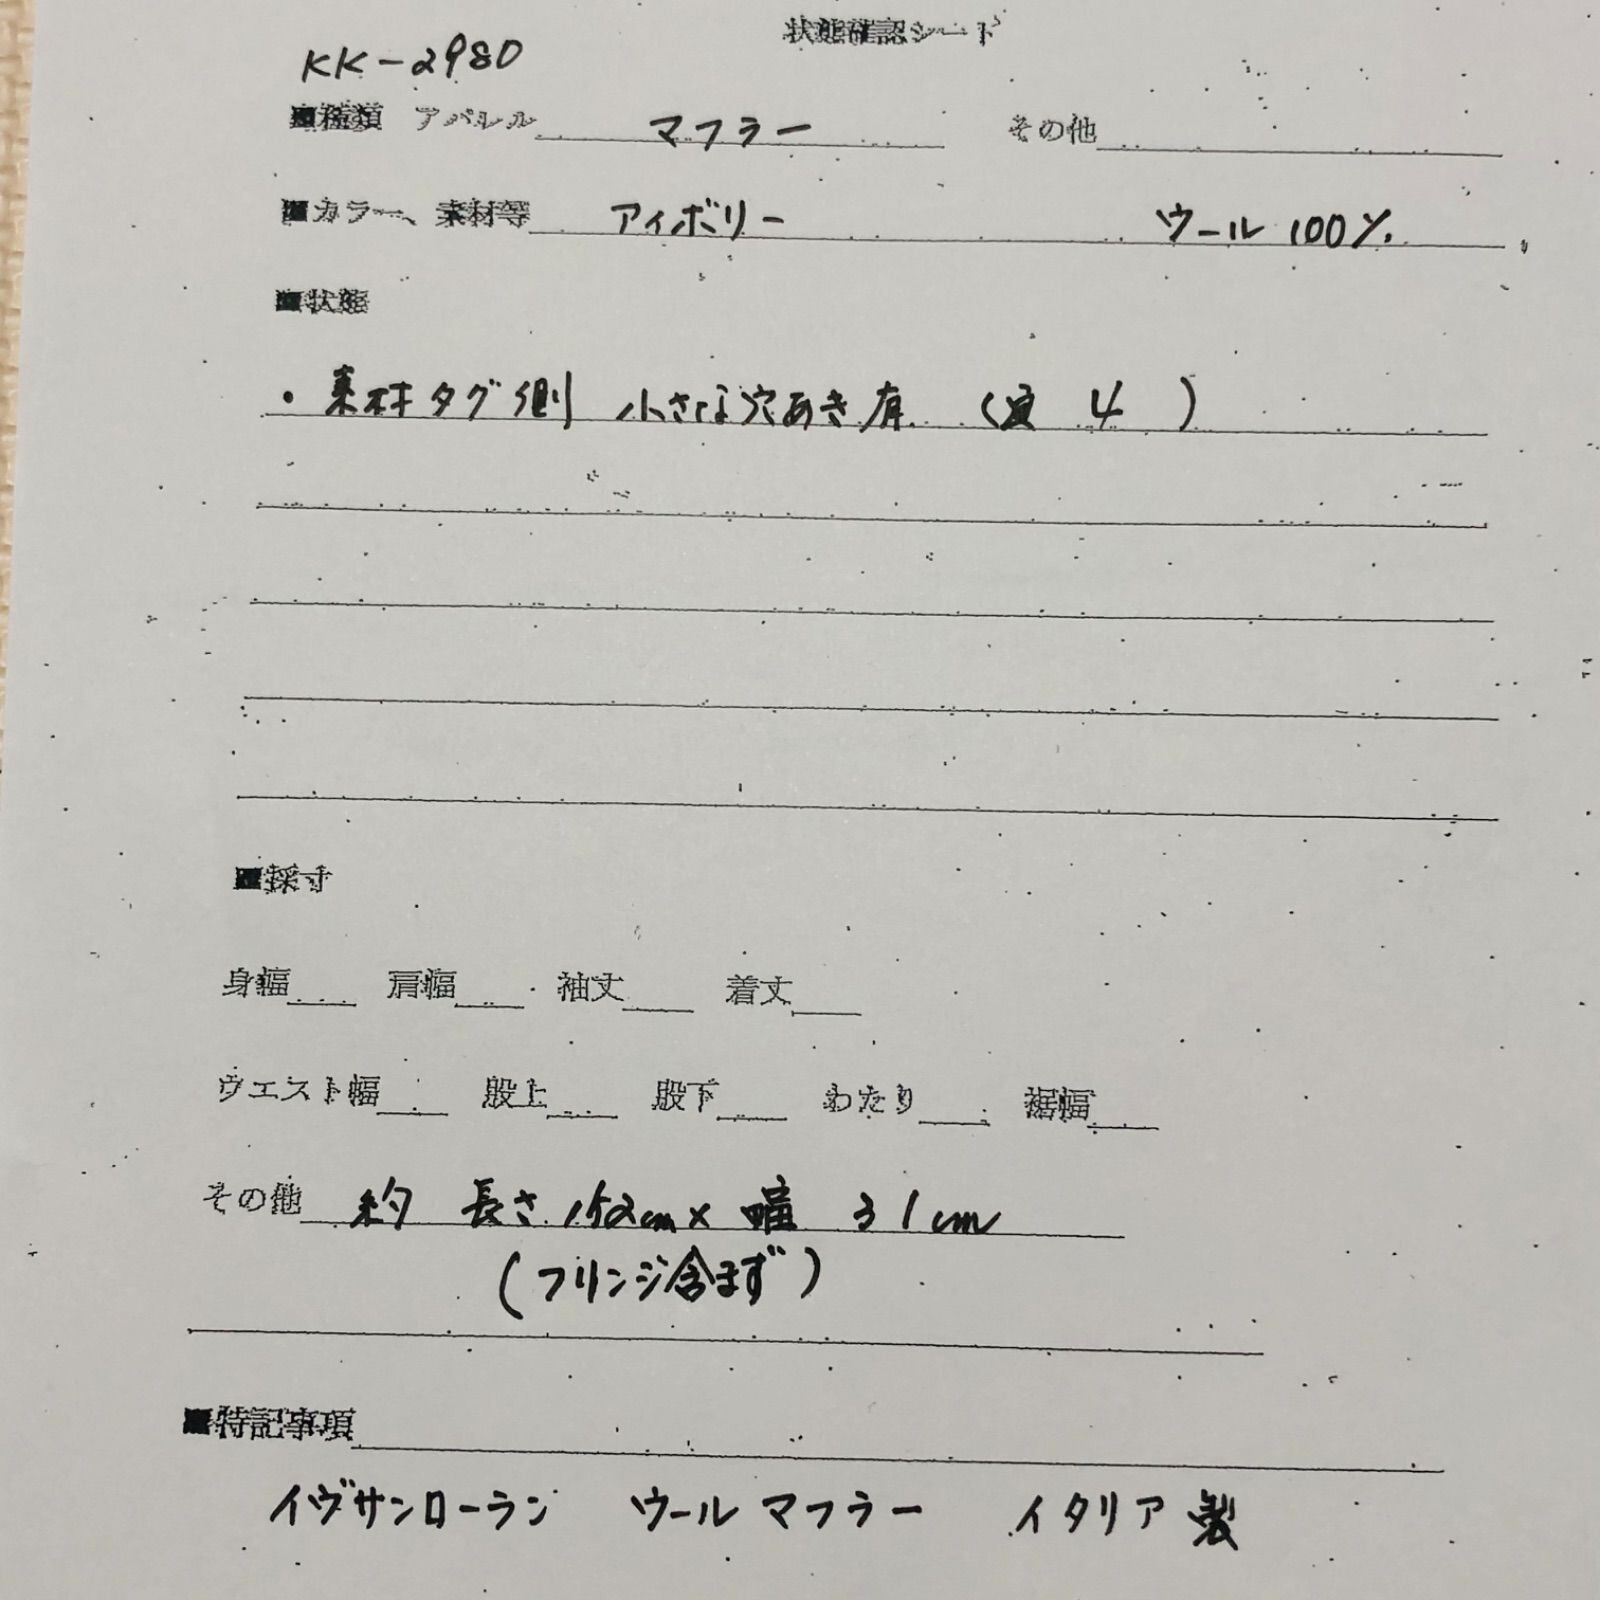 状態確認シート
KK-2980
■種類 アパレル マフラー その他
■カラー、素材等 アイボリー ウール 100%
■状態
・素材タグ側 小さな穴あき有 (直 4 )
■採寸
身幅 肩幅 袖丈 着丈
ウエスト幅 股上 股下 わたり 裾幅
その他 約 長さ 152cm× 幅 31cm
(フリンジ含まず)
■特記事項
イヴサンローラン ウール マフラー イタリア製